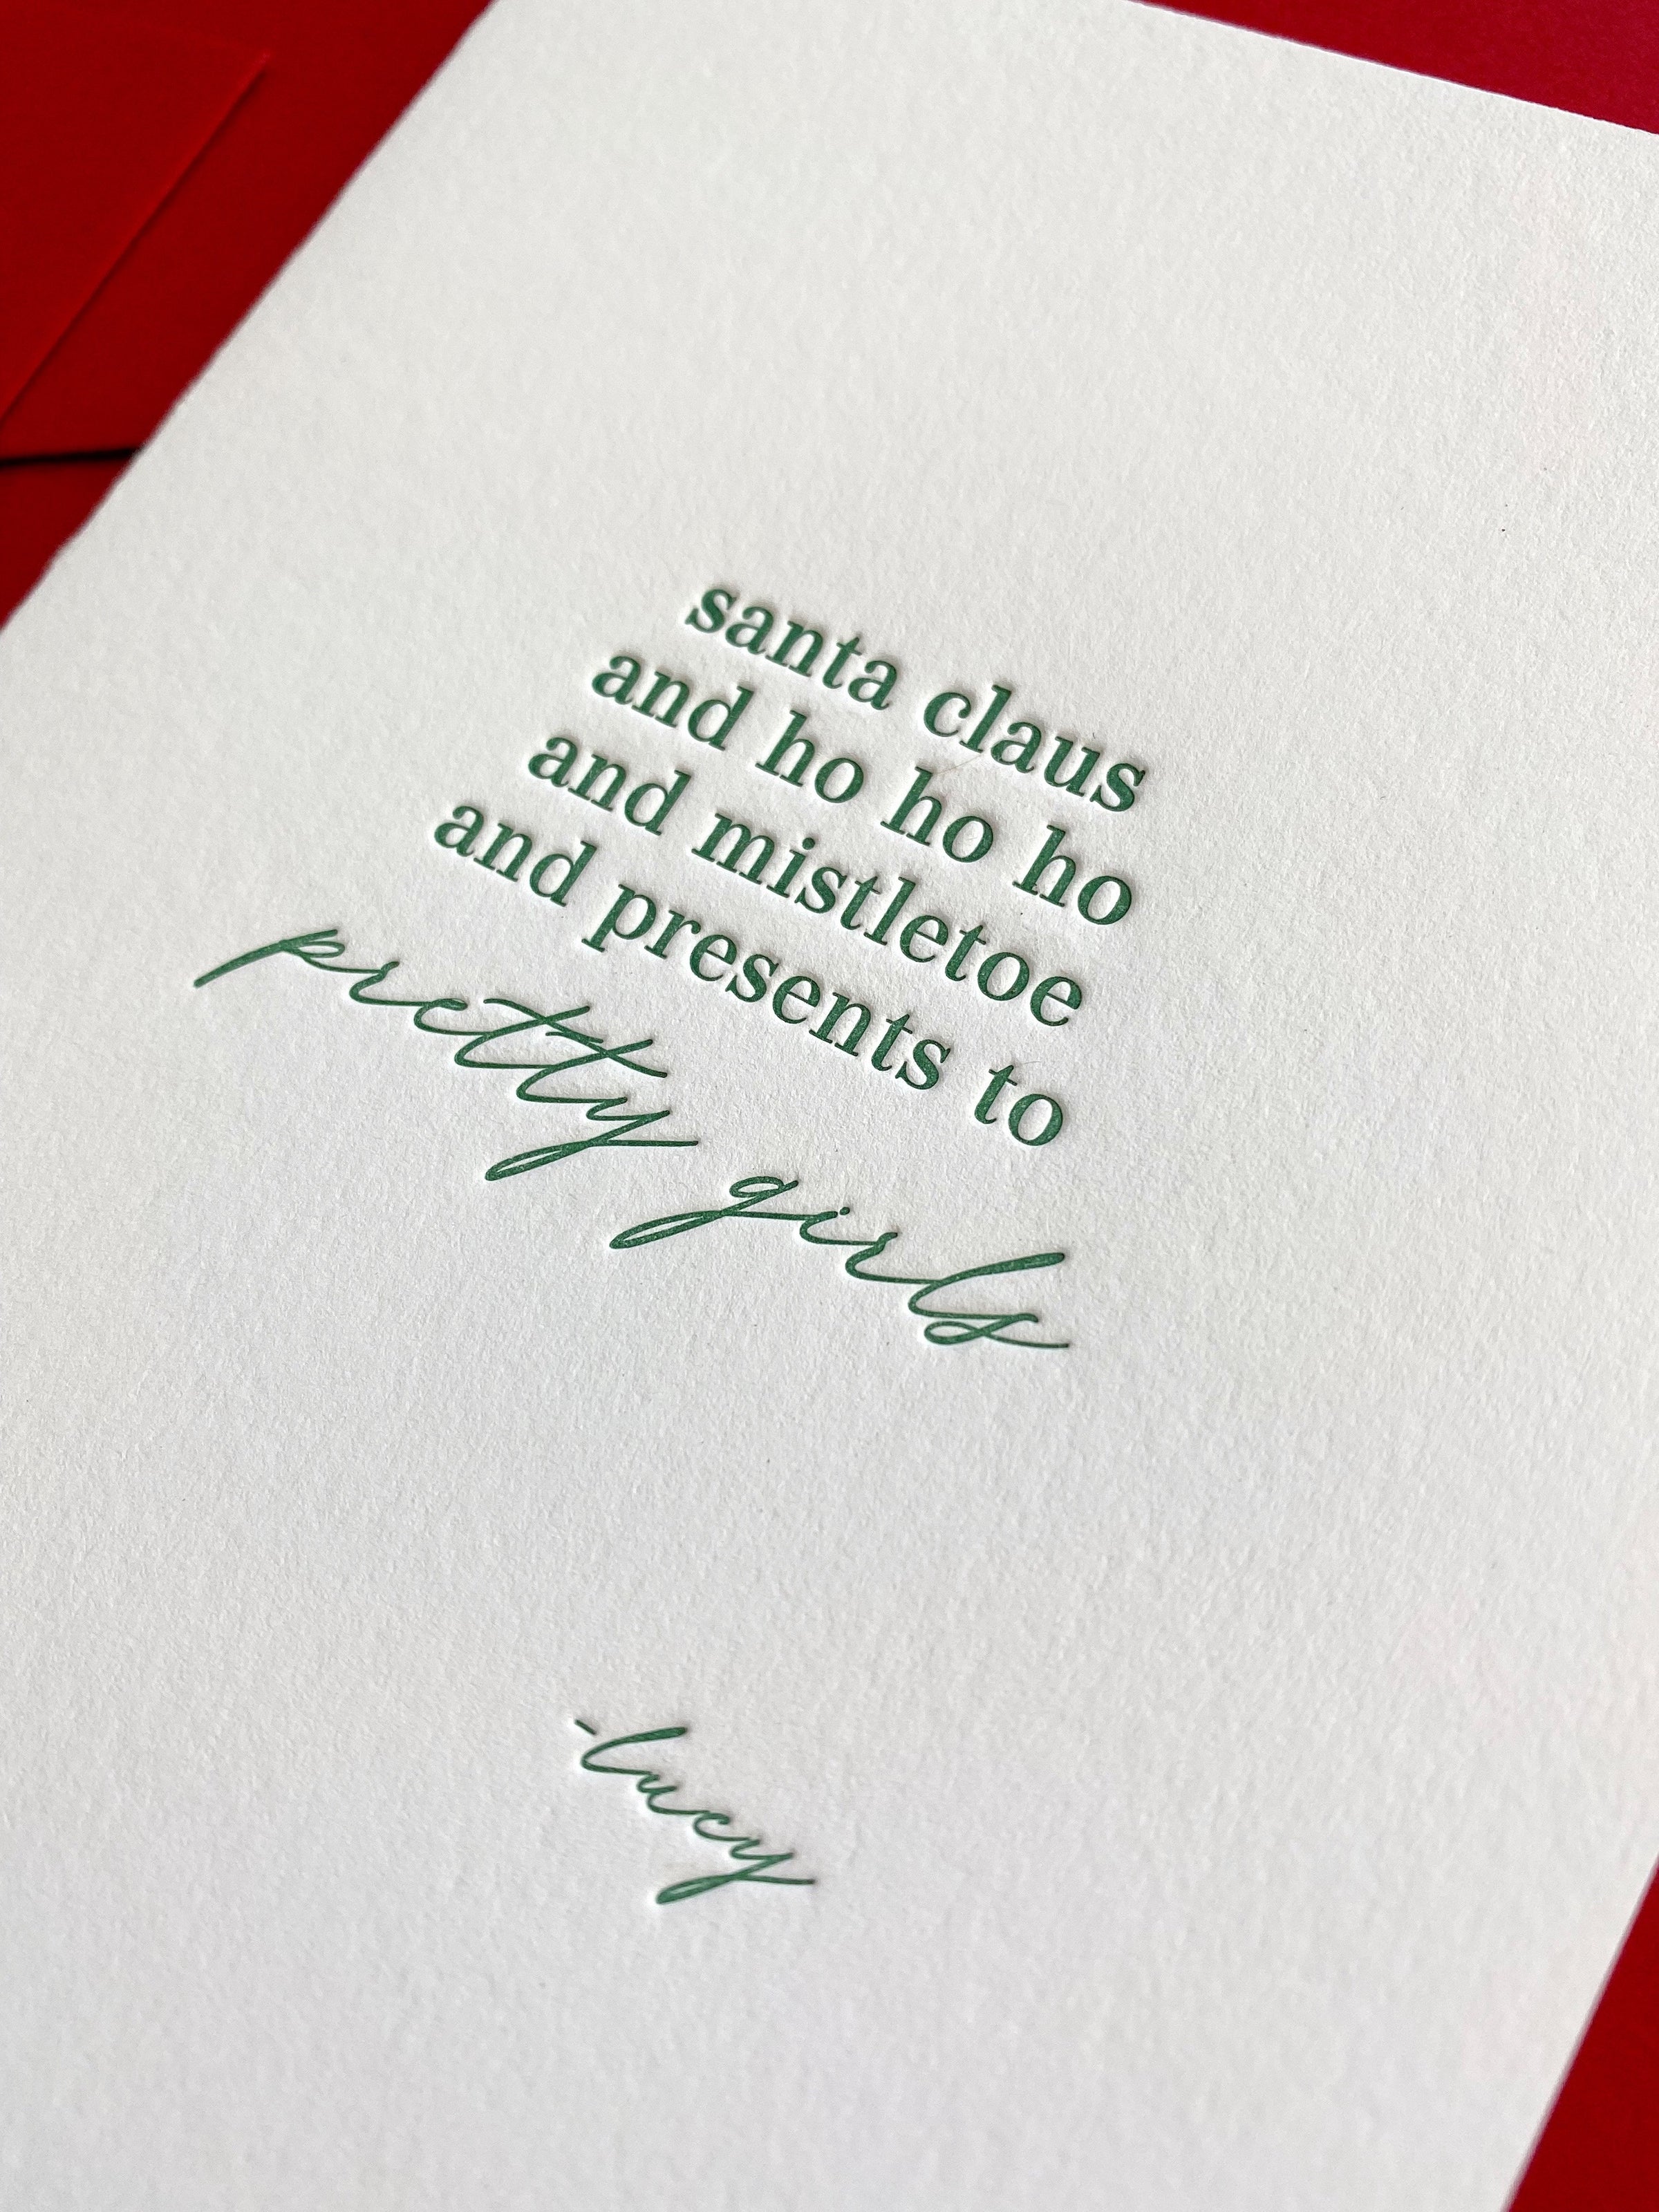 santa claus
and ho ho ho
and mistletoe
and presents to
pretty girls
-lucy